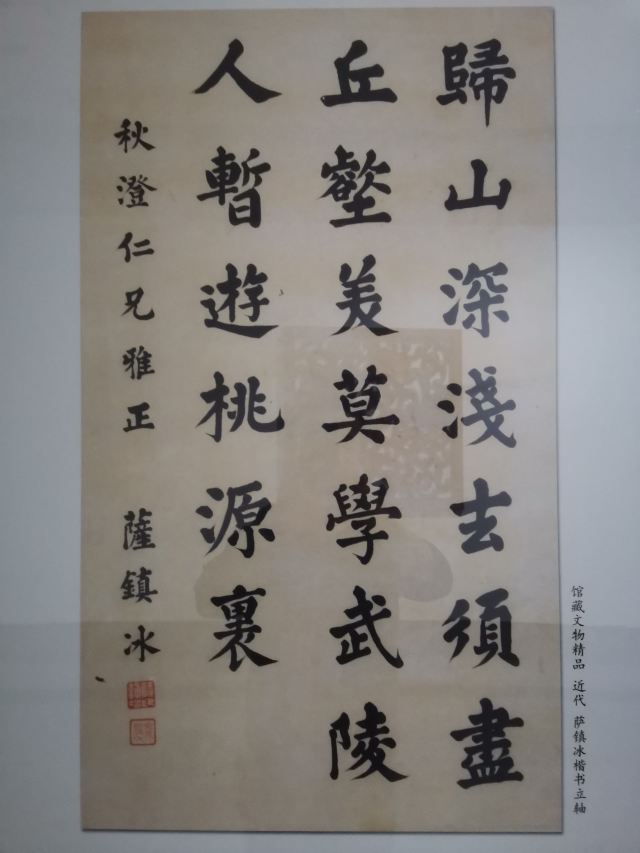 歸山深淺去須盡
丘壑美莫學武陵
人暫遊桃源裏
秋澄仁兄雅正 薩鎮冰
馆藏文物精品 近代 萨镇冰楷书立轴